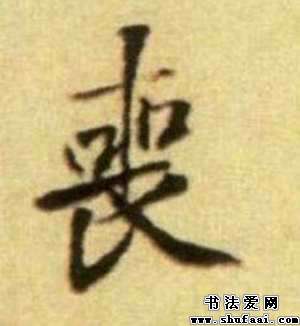 喪
书法爱网
www.shufaai.com